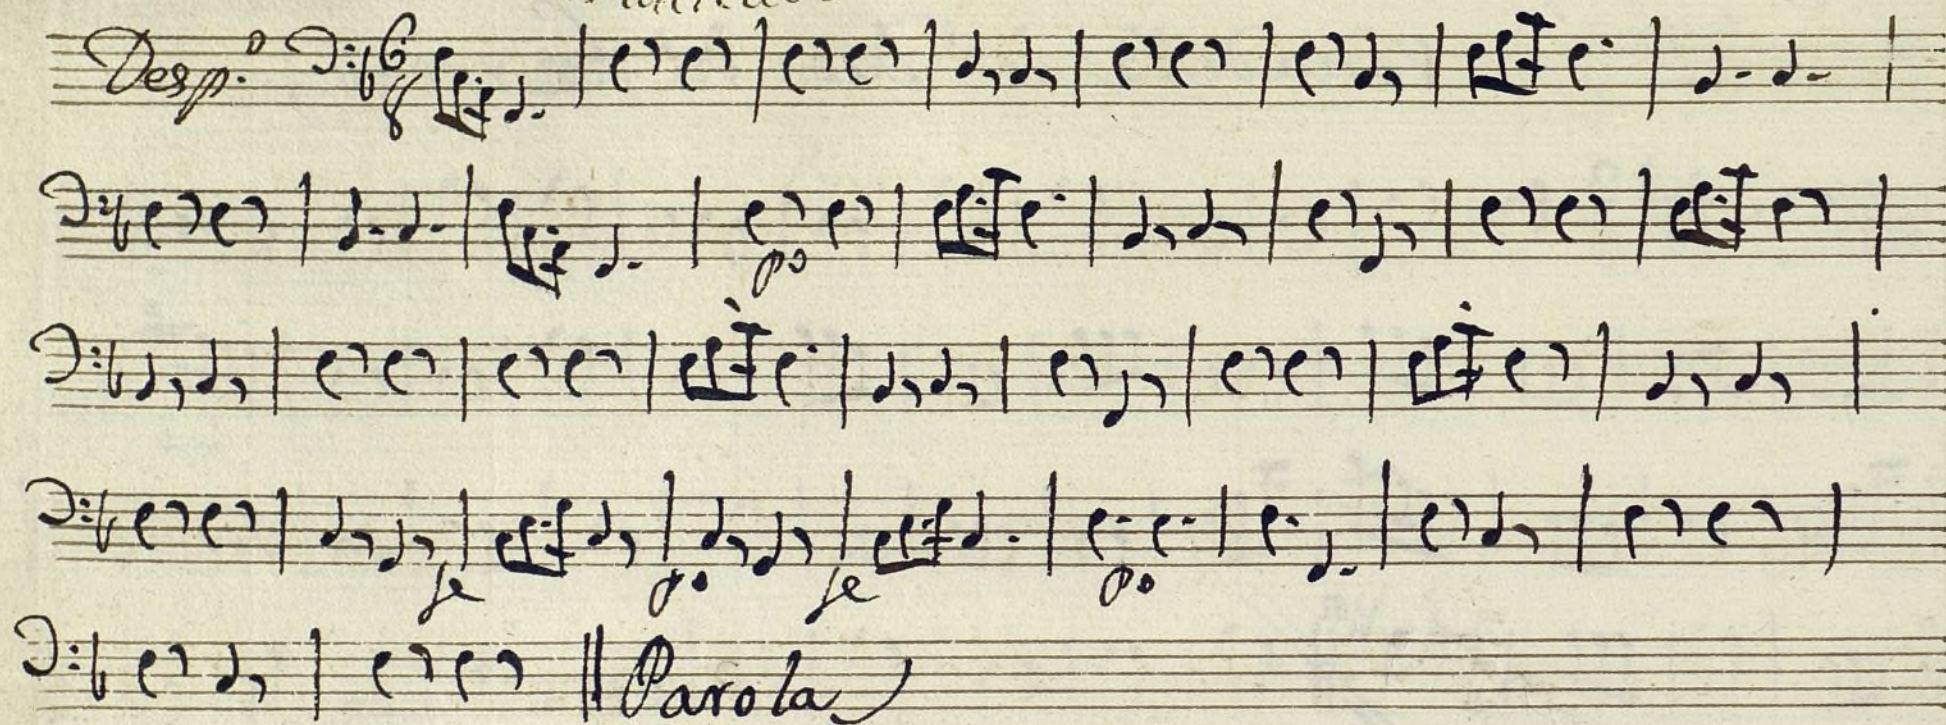 Desp.º 6/8
po
fe po fe po
Parola